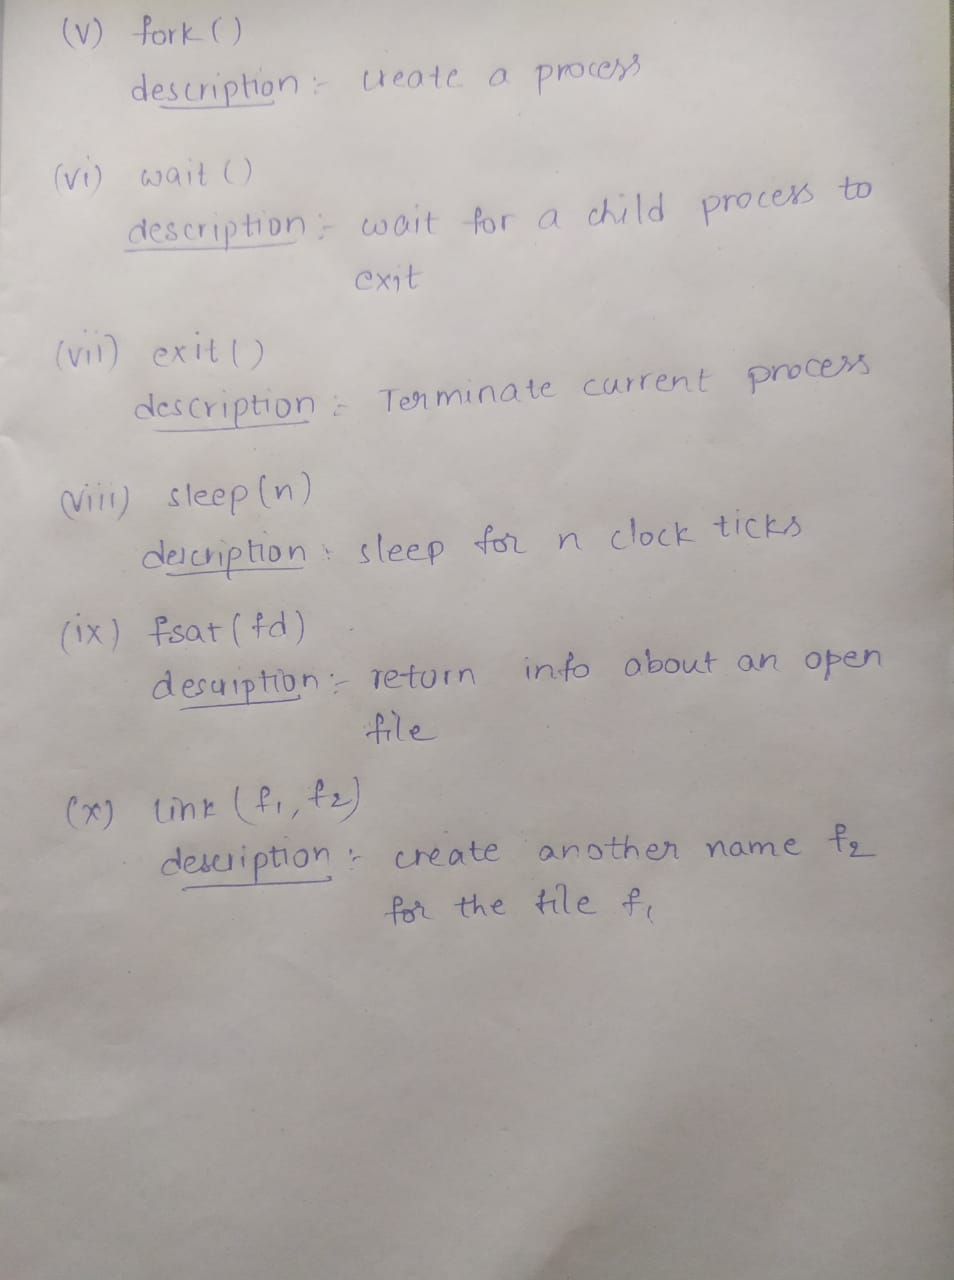 (v) fork()
description :- create a process
(vi) wait()
description :- wait for a child process to
exit
(vii) exit()
description :- Terminate current process
(viii) sleep(n)
description :- sleep for n clock ticks
(ix) fsat(fd)
description :- return info about an open
file
(x) link (f₁, f₂)
description :- create another name f₂
for the file f₁